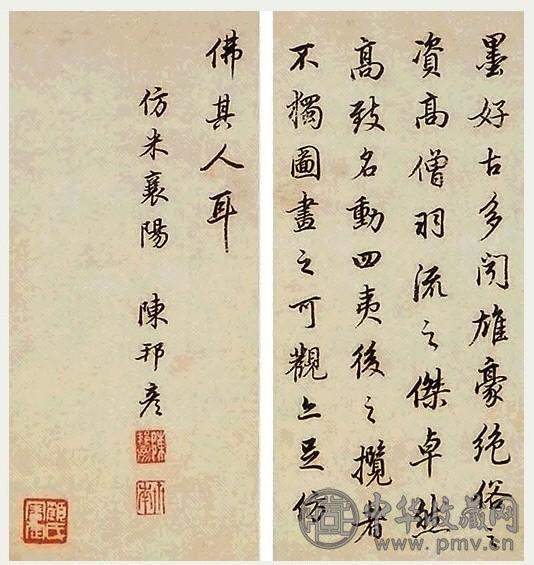 墨好古多聞雄豪絶俗之
資高僧羽流之傑卓然
高致名動四夷後之攬者
不獨圖畫之可觀亦足仿
佛其人耳
仿米襄陽 陳邦彦
中华收藏网
www.pmv.cn